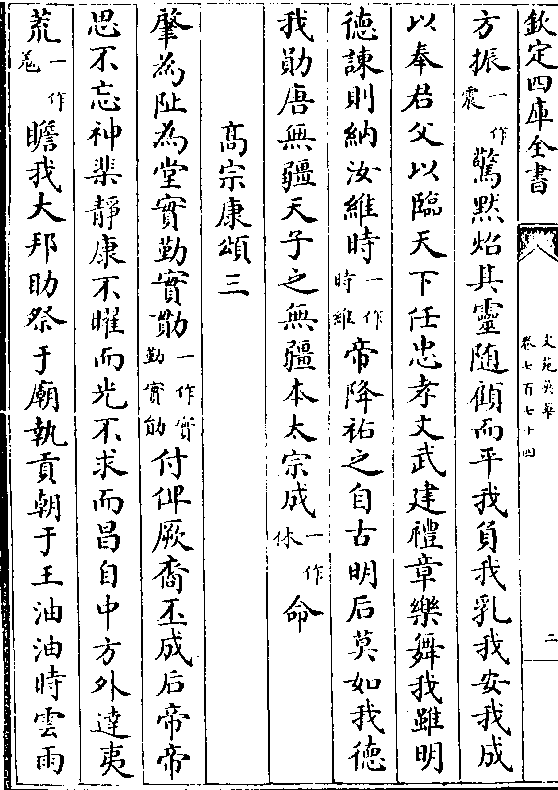 欽定四庫全書
文苑英華
卷七百七十四
二
方振一作震驚黙炲其靈随傾而平我負我乳我安我成
以奉君父以臨天下任忠孝文武建禮章樂舞我雖明
德諫則納汝維時一作時維帝降祐之自古明后莫如我德
我勛唐無疆天子之無疆本太宗成一作休命
髙宗康頌三
肇為阯為堂實勤實勩一作實勤實勛付仰厥裔丕成后帝帝
思不忘神棐靜康不曜而光不求而昌自中方外達夷
荒一作㡃瞻我大邦助祭于廟執貢朝于王油油時雲雨